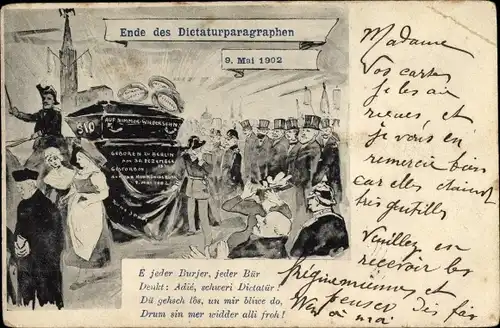 Ende des Dictaturparagraphen
9. Mai 1902
§10
AUF NIMMER-WIEDERSEHN
GEBOREN ZU BERLIN
AM 30 DEZEMBER
GESTORBEN
E jeder Burjer, jeder Bür
Denkt: Adié, schweri Dictatür!
Dü gehsch lôs, un mir bliwe do,
Drum sin mer widder alli froh!
Madame
Vos cartes
je les ai
reçues, et
je vous en
remercie bien
car elles étaient
très gentilles
Veuillez en
recevoir les
penser dès fois
à moi